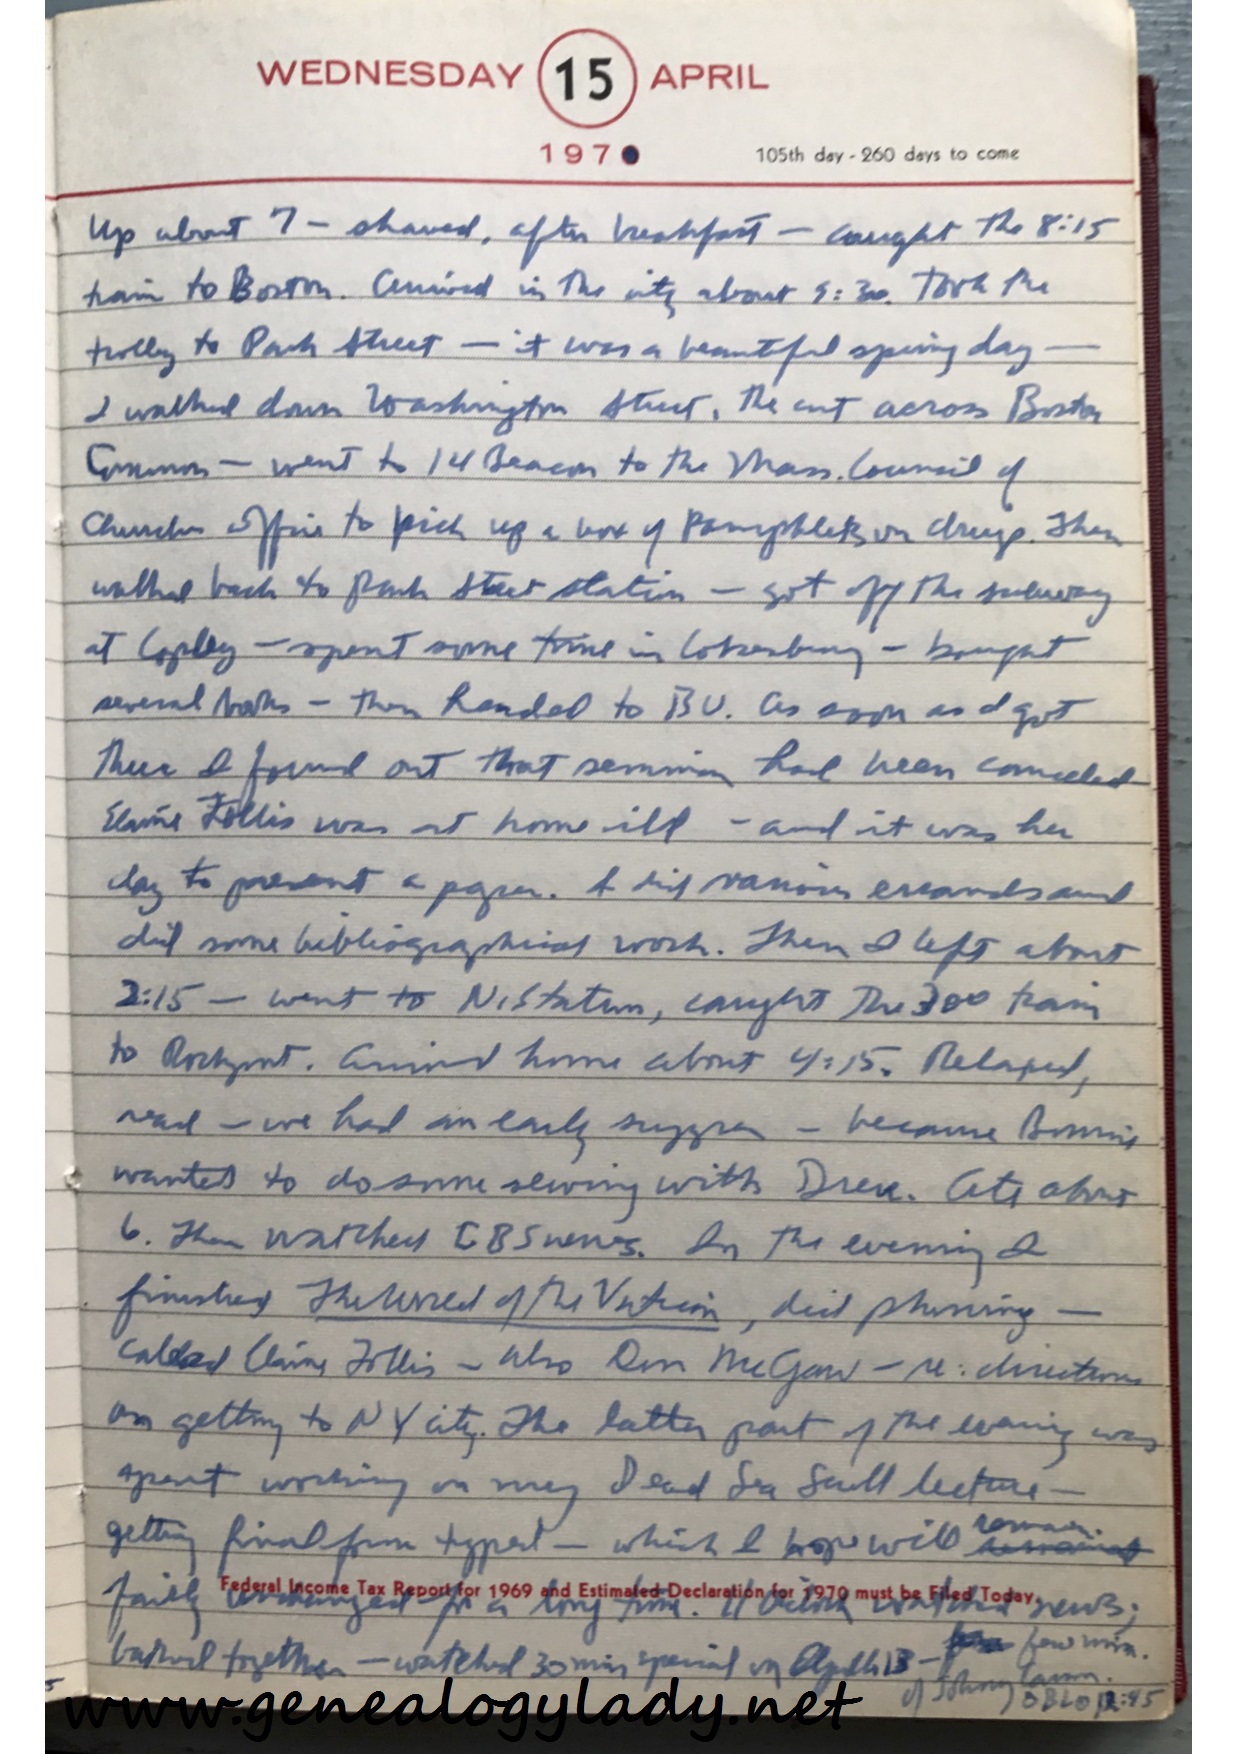 WEDNESDAY 15 APRIL
1970
105th day - 260 days to come
Up about 7 – shaved, after breakfast – caught the 8:15
train to Boston. Arrived in the city about 9:30. Took the
trolley to Park Street – it was a beautiful spring day –
I walked down Washington Street, the cut across Boston
Common – went to 14 Beacon to the Mass. Council of
Churches office to pick up a box of Pamphlets on drugs. Then
walked back to Park Street station – got off the subway
at Copley – spent some time in Cokesbury – bought
several books – then headed to BU. As soon as I got
there I found out that seminar had been canceled
Elaine Follis was at home ill – and it was her
day to present a paper. I did various errands and
did some bibliographical work. Then I left about
2:15 – went to N. Station, caught the 3:00 train
to Rockport. Arrived home about 4:15. Relaxed,
read – we had an early supper – because Bonnie
wanted to do some sewing with Drew. Ate about
6. Then watched CBS news. In the evening I
finished The World of the Vatican, did phoning –
called Elaine Follis – also Don McGaw – re: directions
on getting to NY city. The latter part of the evening was
spent working on my Dead Sea Scroll lecture –
getting final form typed – which I hope will remain
fairly unchanged for a long time. 11 o'clock watched news;
Federal Income Tax Report for 1969 and Estimated Declaration for 1970 must be Filed Today.
bathed together – watched 30 min special on Apollo 13 – few min.
of Johnny Carson.
OBLO 12:45
www.genealogylady.net